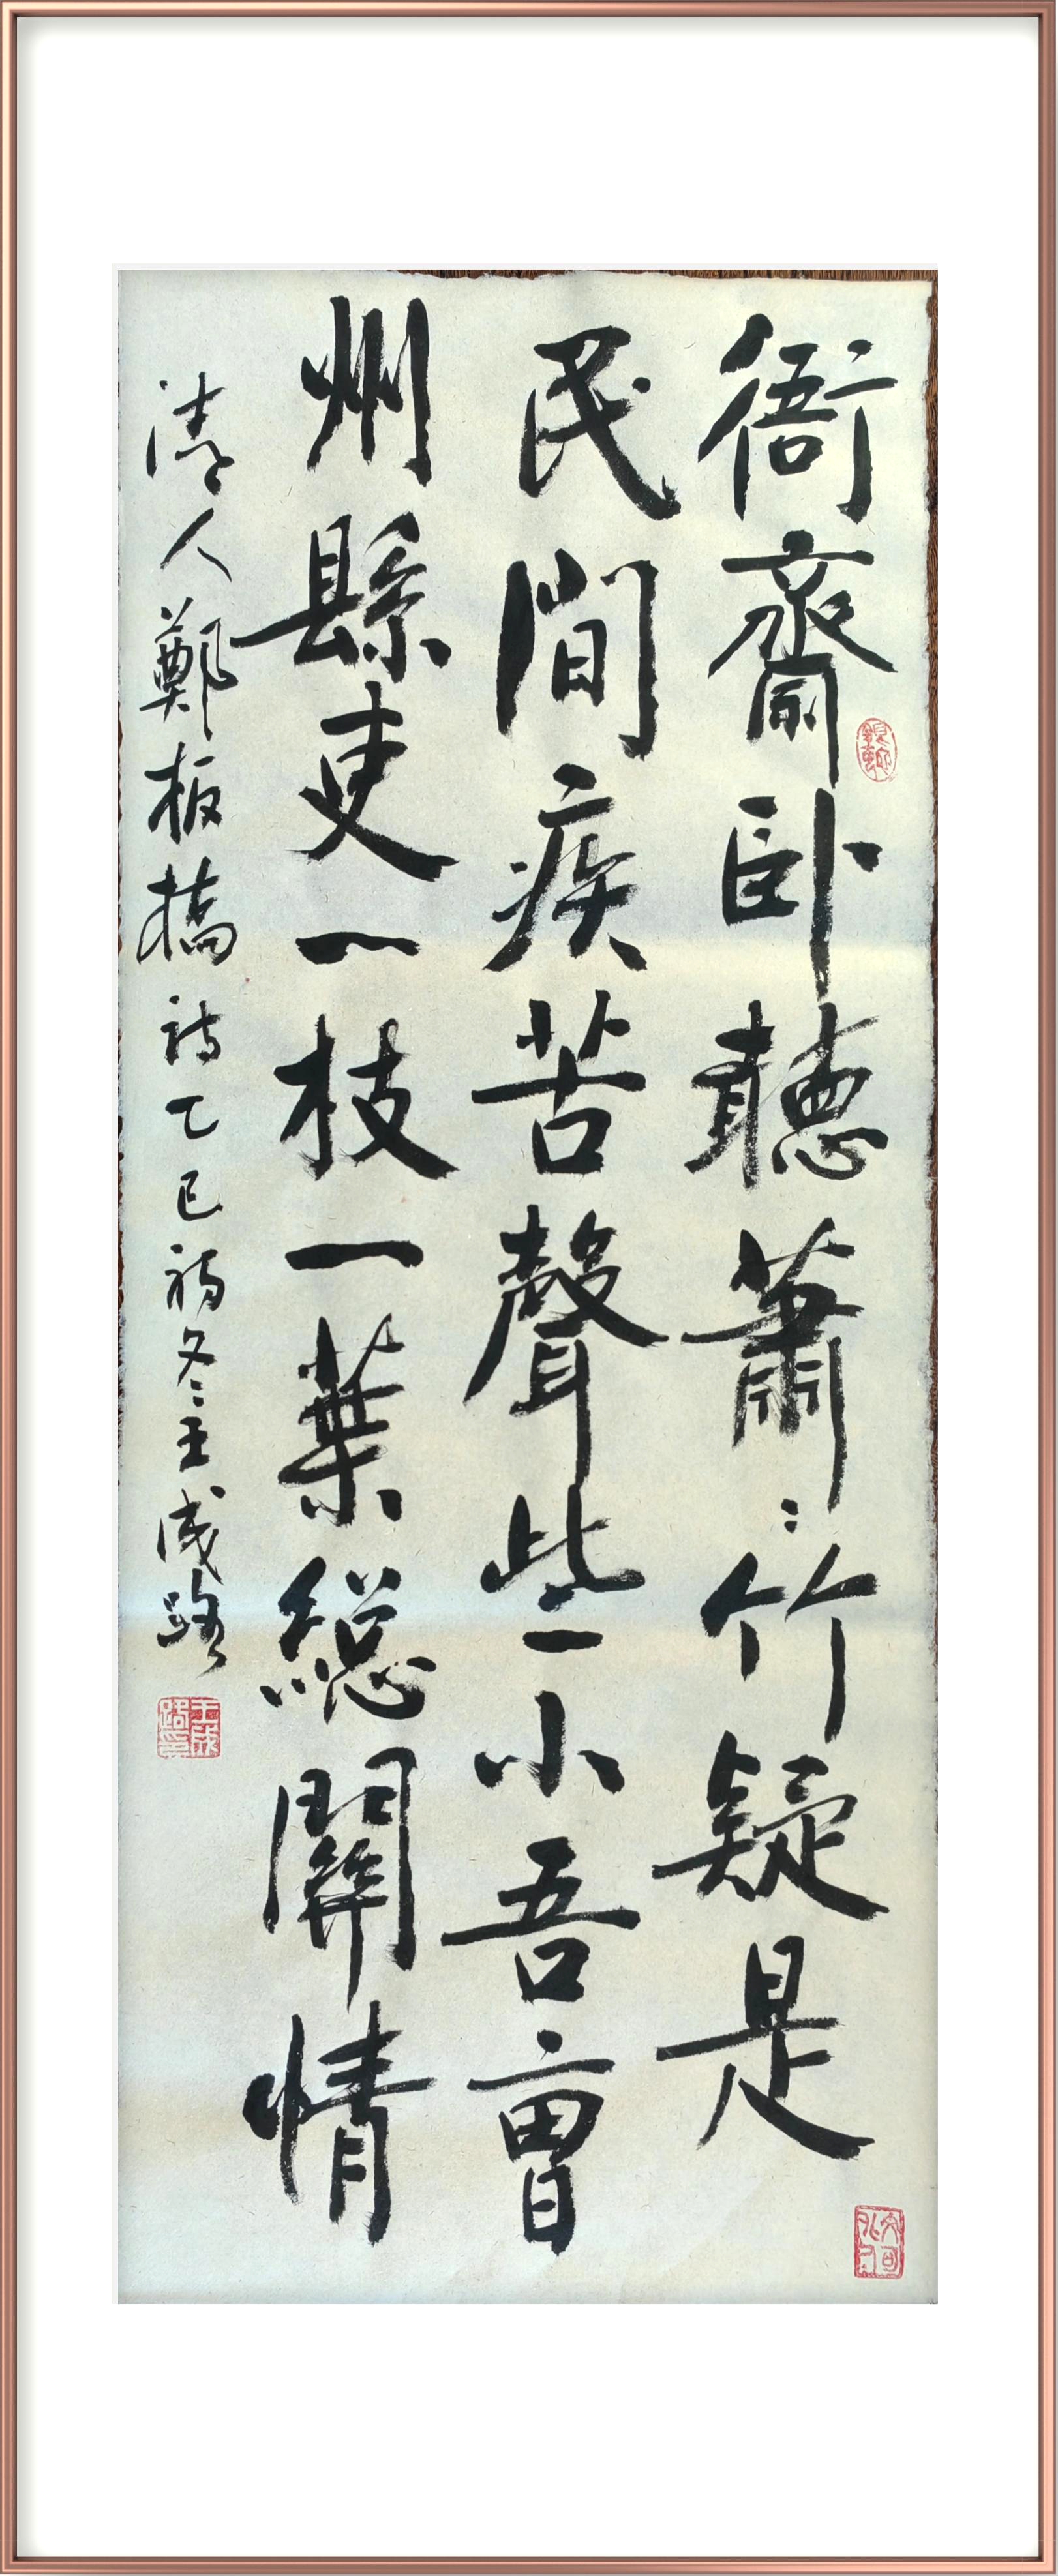 衙齋卧聽蕭〻竹疑是
民間疾苦聲些小吾曹
州縣吏一枝一葉総關情
清人鄭板橋詩乙巳初冬王成路
王成路印